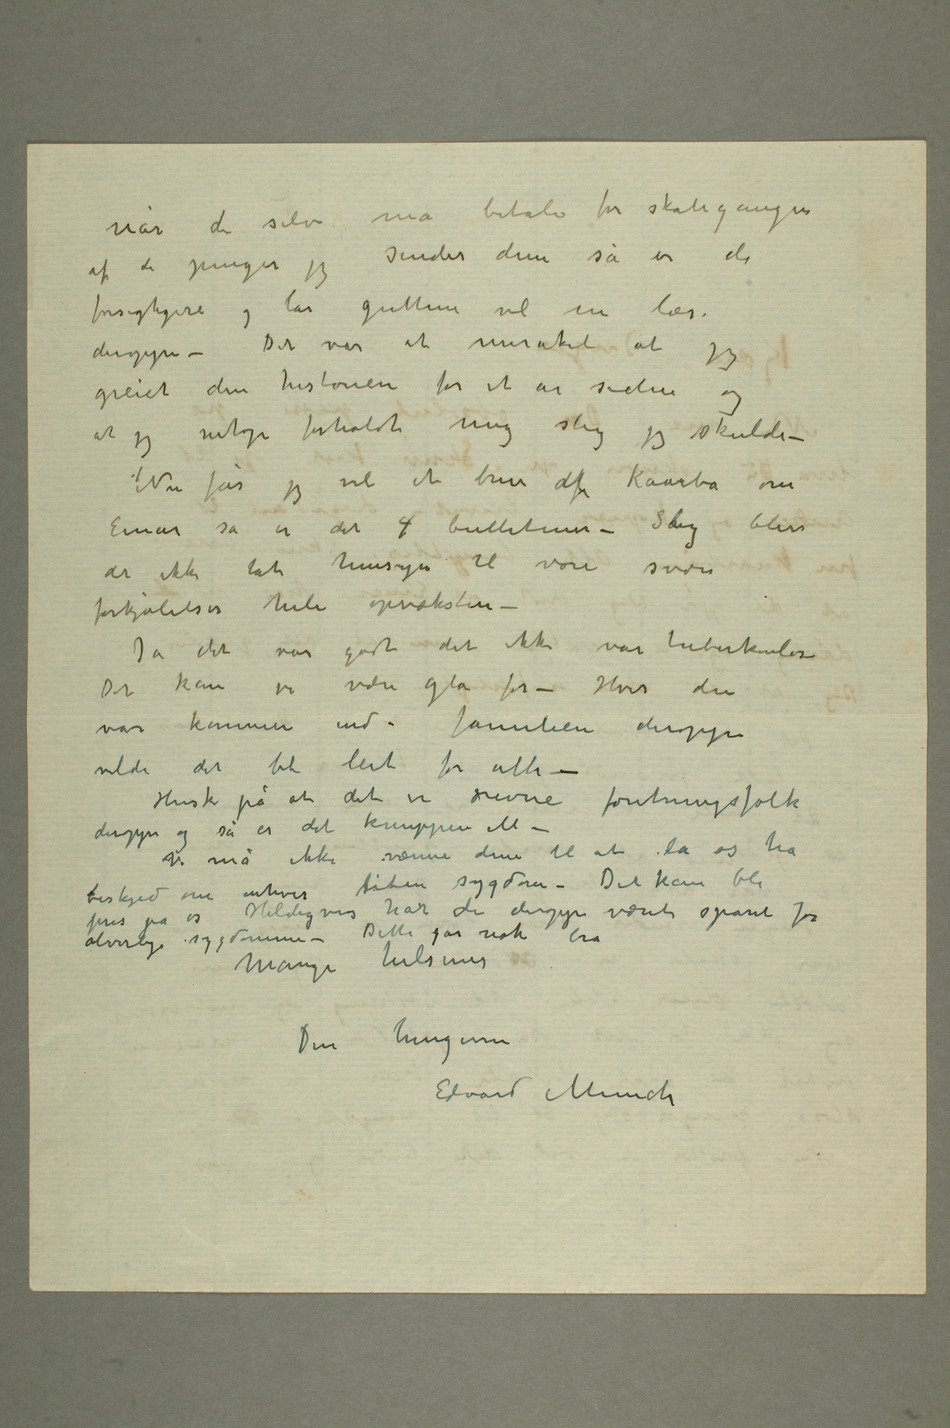 når de selv må betale for skolegangen
af de penger jg sender dem så er de
forsigtigere og lar guttene vel en læse
deroppe – Det var et mirakel at jg
greiet den historien for et år siden og
at jg netop forholdt mig slig jg skulde –
Nu får jg vel et brev af Kaarbø om
Einar så er det 4 bulletiner – Slig blev
der ikke tat hensyn til vore svære
forkjølelser hele opvæksten –
Ja det var godt det ikke var tuberkulose
Det kan vi være gla for – Hvis den
var kommen ind i familien deroppe
vilde det bli leit for alle –
Husk på at det er revne foretningsfolk
deroppe og så er det knappen til –
Vi må ikke vænne dem til at la os ha
beskjed om enhver liten sygdom – Det kan bli
pres på os Heldigvis har de deroppe været sparet for
alvorlige sygdomme – Dette går nok bra
Mange hilsener
Din hengivne
Edvard Munch